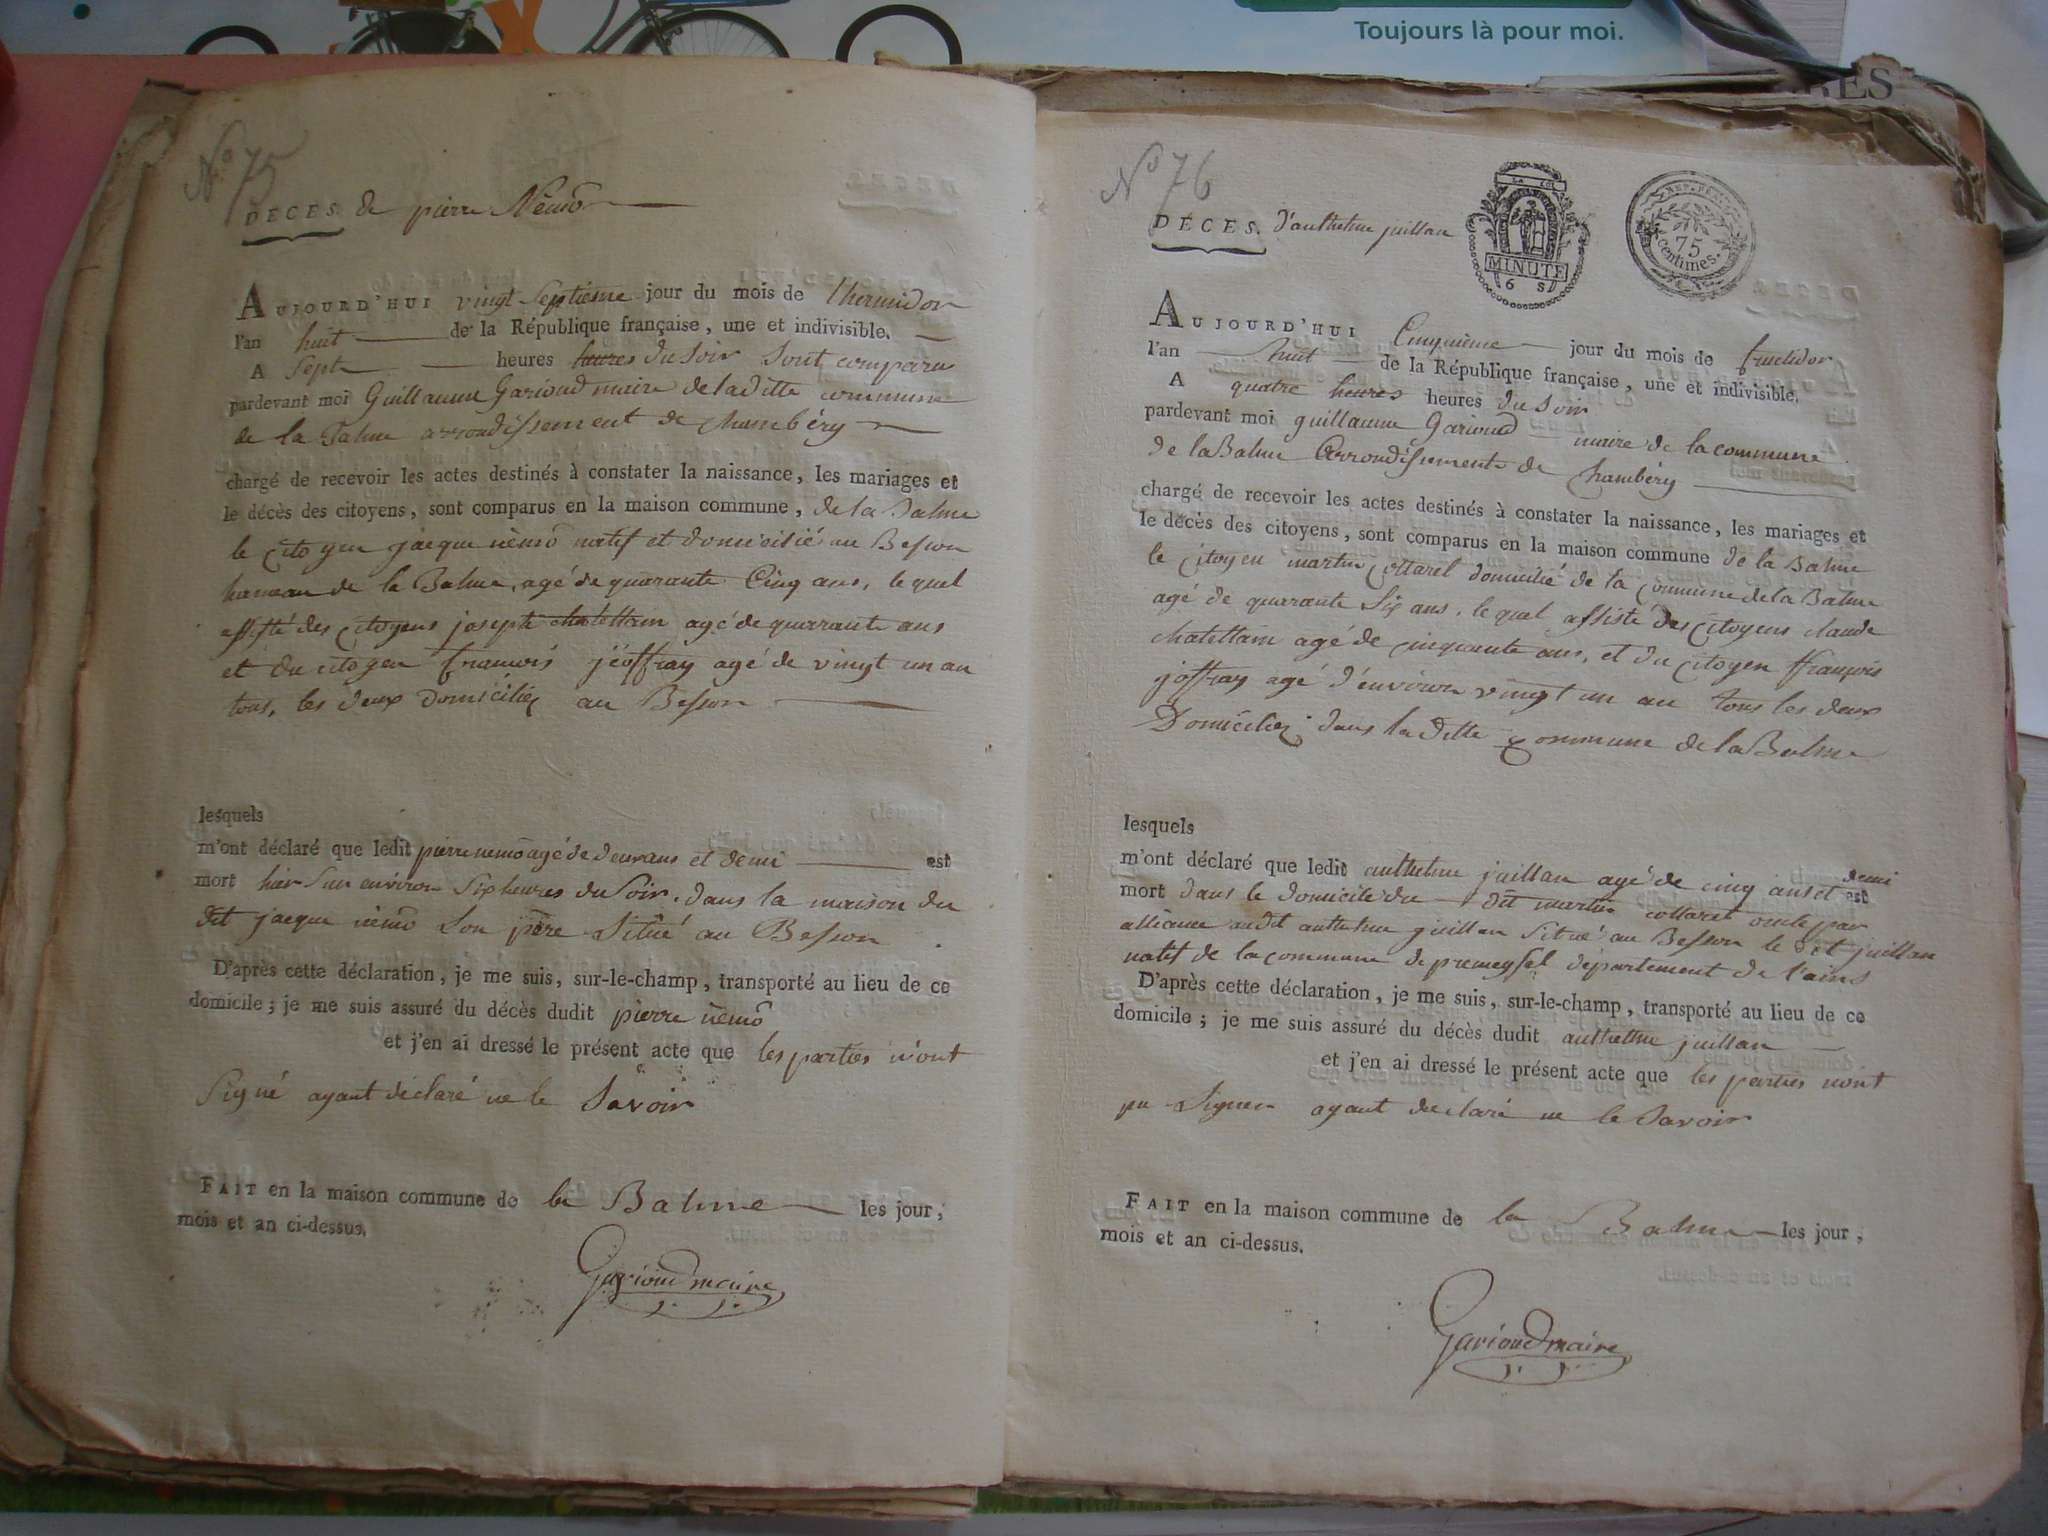 Toujours là pour moi.
RES
N° 75
DÉCES de pierre Nemõ
AUJOURD'HUI vingt Septieme jour du mois de thermidor
l'an huit de la République française, une et indivisible.
A Sept heures heures du Soir Sont comparu
pardevant moi Guillaume Garioud maire de laditte commune
de la Balme arrondissement de Chambéry
chargé de recevoir les actes destinés à constater la naissance, les mariages et
le décès des citoyens, sont comparus en la maison commune, de la Balme
le citoyen jacque nemõ natif et domicilié au Besson
hameau de la Balme, agé de quarante Cinq ans, le quel
assisté des citoyens joseph chatellain agé de quarante ans
et du citoyen francois jéoffray agé de vingt un an
tous, les deux domiciliez au Besson
lesquels
m'ont déclaré que ledit pierre nemõ agé de deux ans et demi est
mort hier Sur environ Six heures du Soir, dans la maison du
dit jacque nemõ Son père Situé au Besson
D'après cette déclaration, je me suis, sur-le-champ, transporté au lieu de ce
domicile; je me suis assuré du décès dudit pierre nemõ
et j'en ai dressé le présent acte que les parties n'ont
Signé ayant déclaré ne le Savoir
FAIT en la maison commune de la Balme les jour,
mois et an ci-dessus.
Garioud maire
N° 76
DÉCES. d'anthelme juillan
LA LOI
MINUTE
6 S
REP. FRA.
75
centimes.
AUJOURD'HUI Cinquieme jour du mois de fructidor
l'an huit de la République française, une et indivisible.
A quatre heures heures du Soir
pardevant moi guillaume Garioud maire de la commune
de la Balme Arrondissement de Chambéry
chargé de recevoir les actes destinés à constater la naissance, les mariages et
le décès des citoyens, sont comparus en la maison commune de la Balme
le citoyen martin cottarel domicilié de la commune de la Balme
agé de quarante Six ans, le quel assisté des citoyens claude
chatellain agé de cinquante ans, et du citoyen françois
joffray agé d'environ vingt un an tous les deux
Domiciliez dans laditte commune de la Balme
lesquels
m'ont déclaré que ledit anthelme juillan agé de cinq ans et demi est
mort dans le domicile du dit martin cottarel oncle par
alliance audit anthelme juillan Situé au Besson le dit juillan
natif de la commune de premeyssel département de l'ains
D'après cette déclaration, je me suis, sur-le-champ, transporté au lieu de ce
domicile; je me suis assuré du décès dudit anthelme juillan
et j'en ai dressé le présent acte que les parties n'ont
pu Signer ayant déclaré ne le Savoir
FAIT en la maison commune de la Balme les jour,
mois et an ci-dessus.
Garioud maire